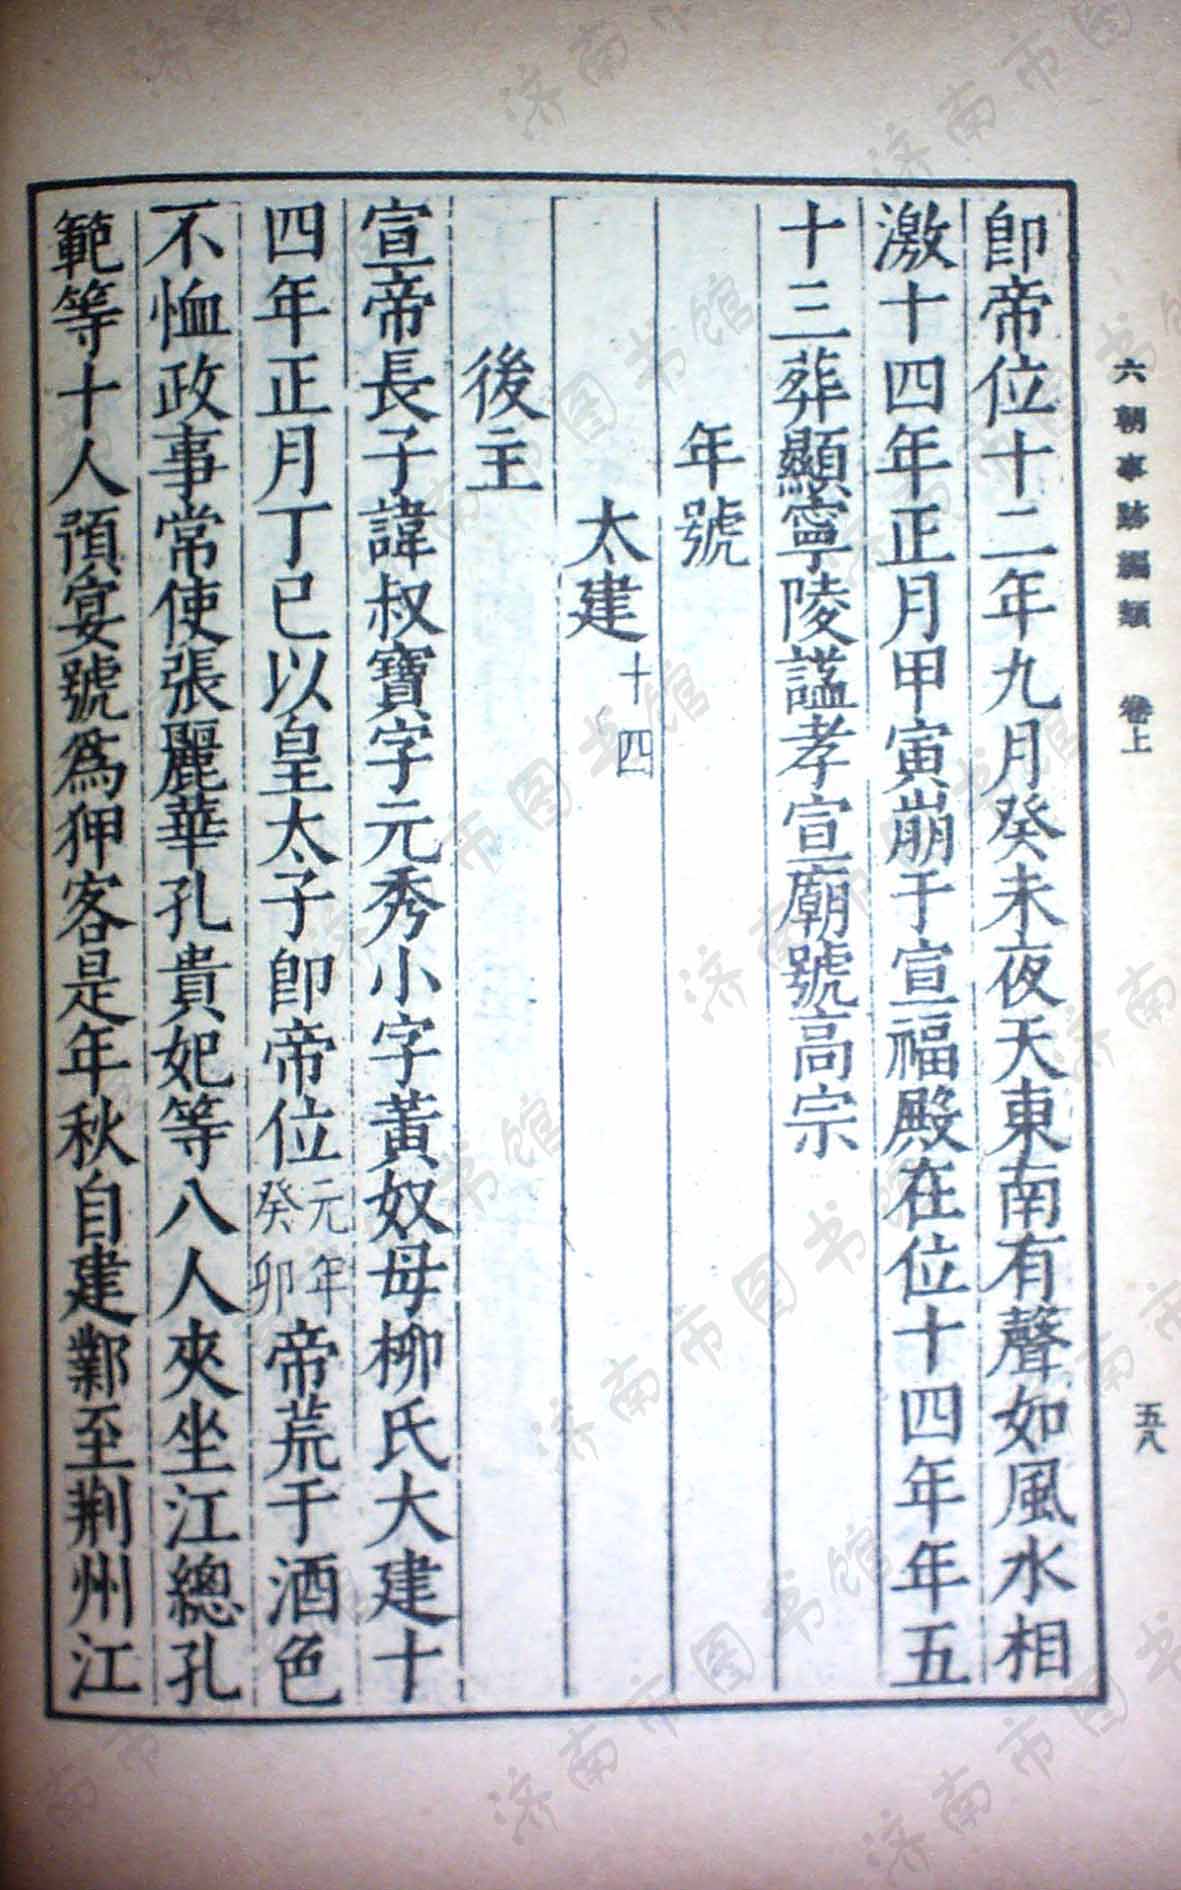 六朝事跡編類 卷上 五八
卽帝位十二年九月癸未夜天東南有聲如風水相
激十四年正月甲寅崩于宣福殿在位十四年年五
十三葬顯寧陵謚孝宣廟號高宗
年號
太建十四
後主
宣帝長子諱叔寶字元秀小字黃奴母柳氏大建十
四年正月丁巳以皇太子卽帝位元年癸卯帝荒于酒色
不恤政事常使張麗華孔貴妃等八人夾坐江總孔
範等十人預宴號爲狎客是年秋自建鄴至荆州江
济南市图书馆